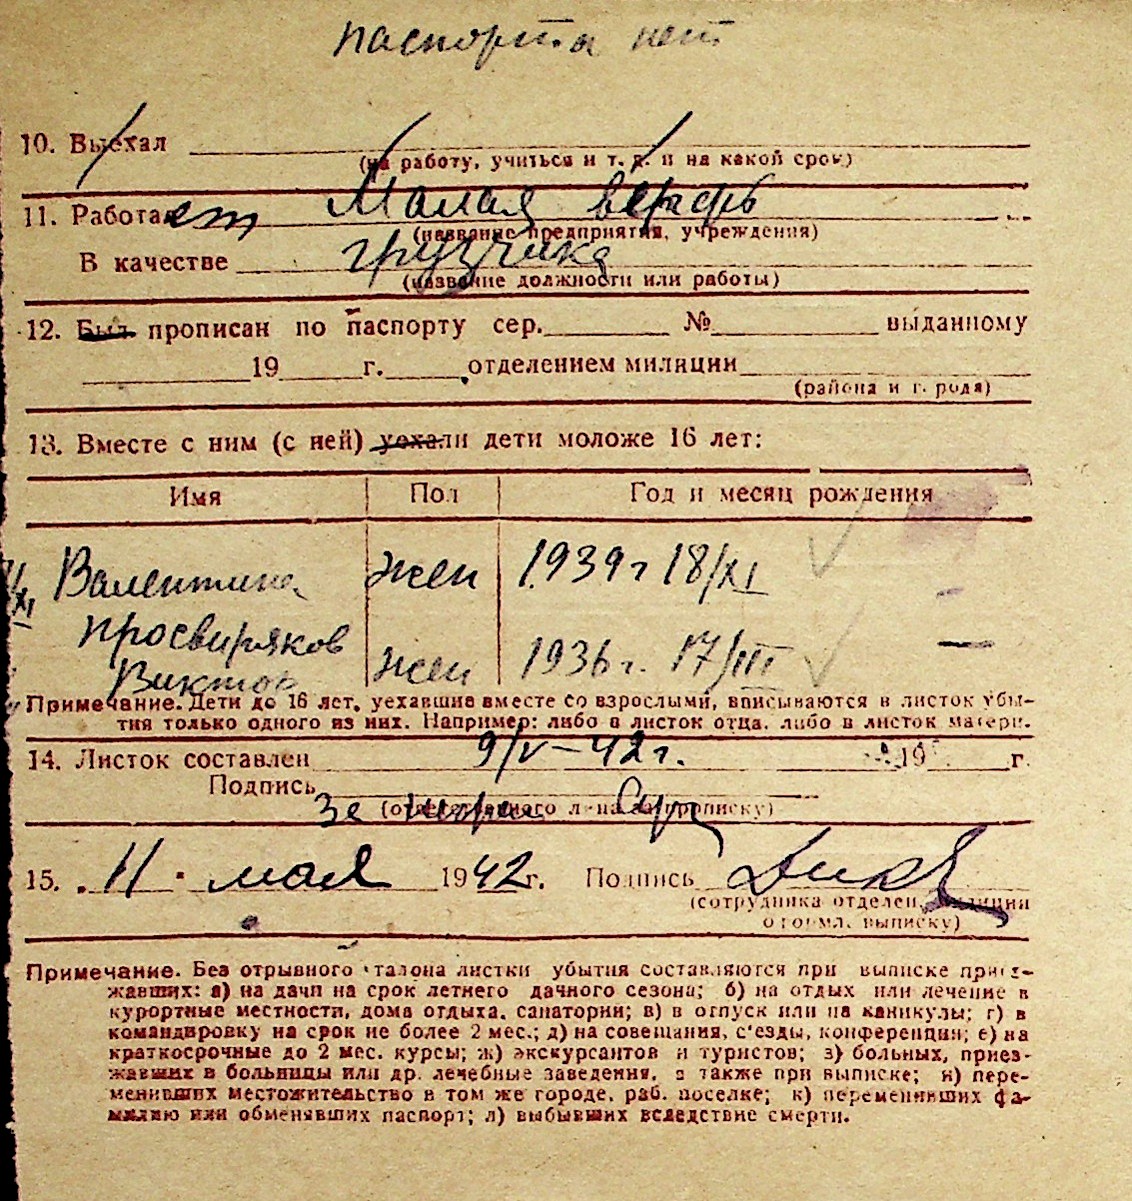 паспорта нет
10. Выехал
(на работу, учиться и т. д. и на какой срок)
11. Работает Малая верфь
(название предприятия, учреждения)
В качестве грузчика
(название должности или работы)
12. Был прописан по паспорту сер. № выданному
19 г. отделением милиции
(района и города)
13. Вместе с ним (с ней) уехали дети моложе 16 лет:
Имя Пол Год и месяц рождения
Валентина жен 1939 г 18/XI
Просвиряков
Виктор жен 1936 г. 17/III
Примечание. Дети до 16 лет, уехавшие вместе со взрослыми, вписываются в листок убы-
тия только одного из них. Например: либо в листок отца, либо в листок матери.
14. Листок составлен 9/V-42 г. 19 г.
Подпись
(ответственного л на прописку)
15. 11 мая 1942 г. Подпись
(сотрудника отделен. милиции
оформл. выписку)
Примечание. Без отрывного талона листки убытия составляются при выписке приез-
жавших: а) на дачи на срок летнего дачного сезона; б) на отдых или лечение в
курортные местности, дома отдыха, санатории; в) в отпуск или на каникулы; г) в
командировку на срок не более 2 мес.; д) на совещания, с'езды, конференции; е) на
краткосрочные до 2 мес. курсы; ж) экскурсантов и туристов; з) больных, приез-
жавших в больницы или др. лечебные заведения, а также при выписке; и) пере-
менивших местожительство в том же городе, раб. поселке; к) переменивших фа-
милию или обменявших паспорт; л) выбывших вследствие смерти.